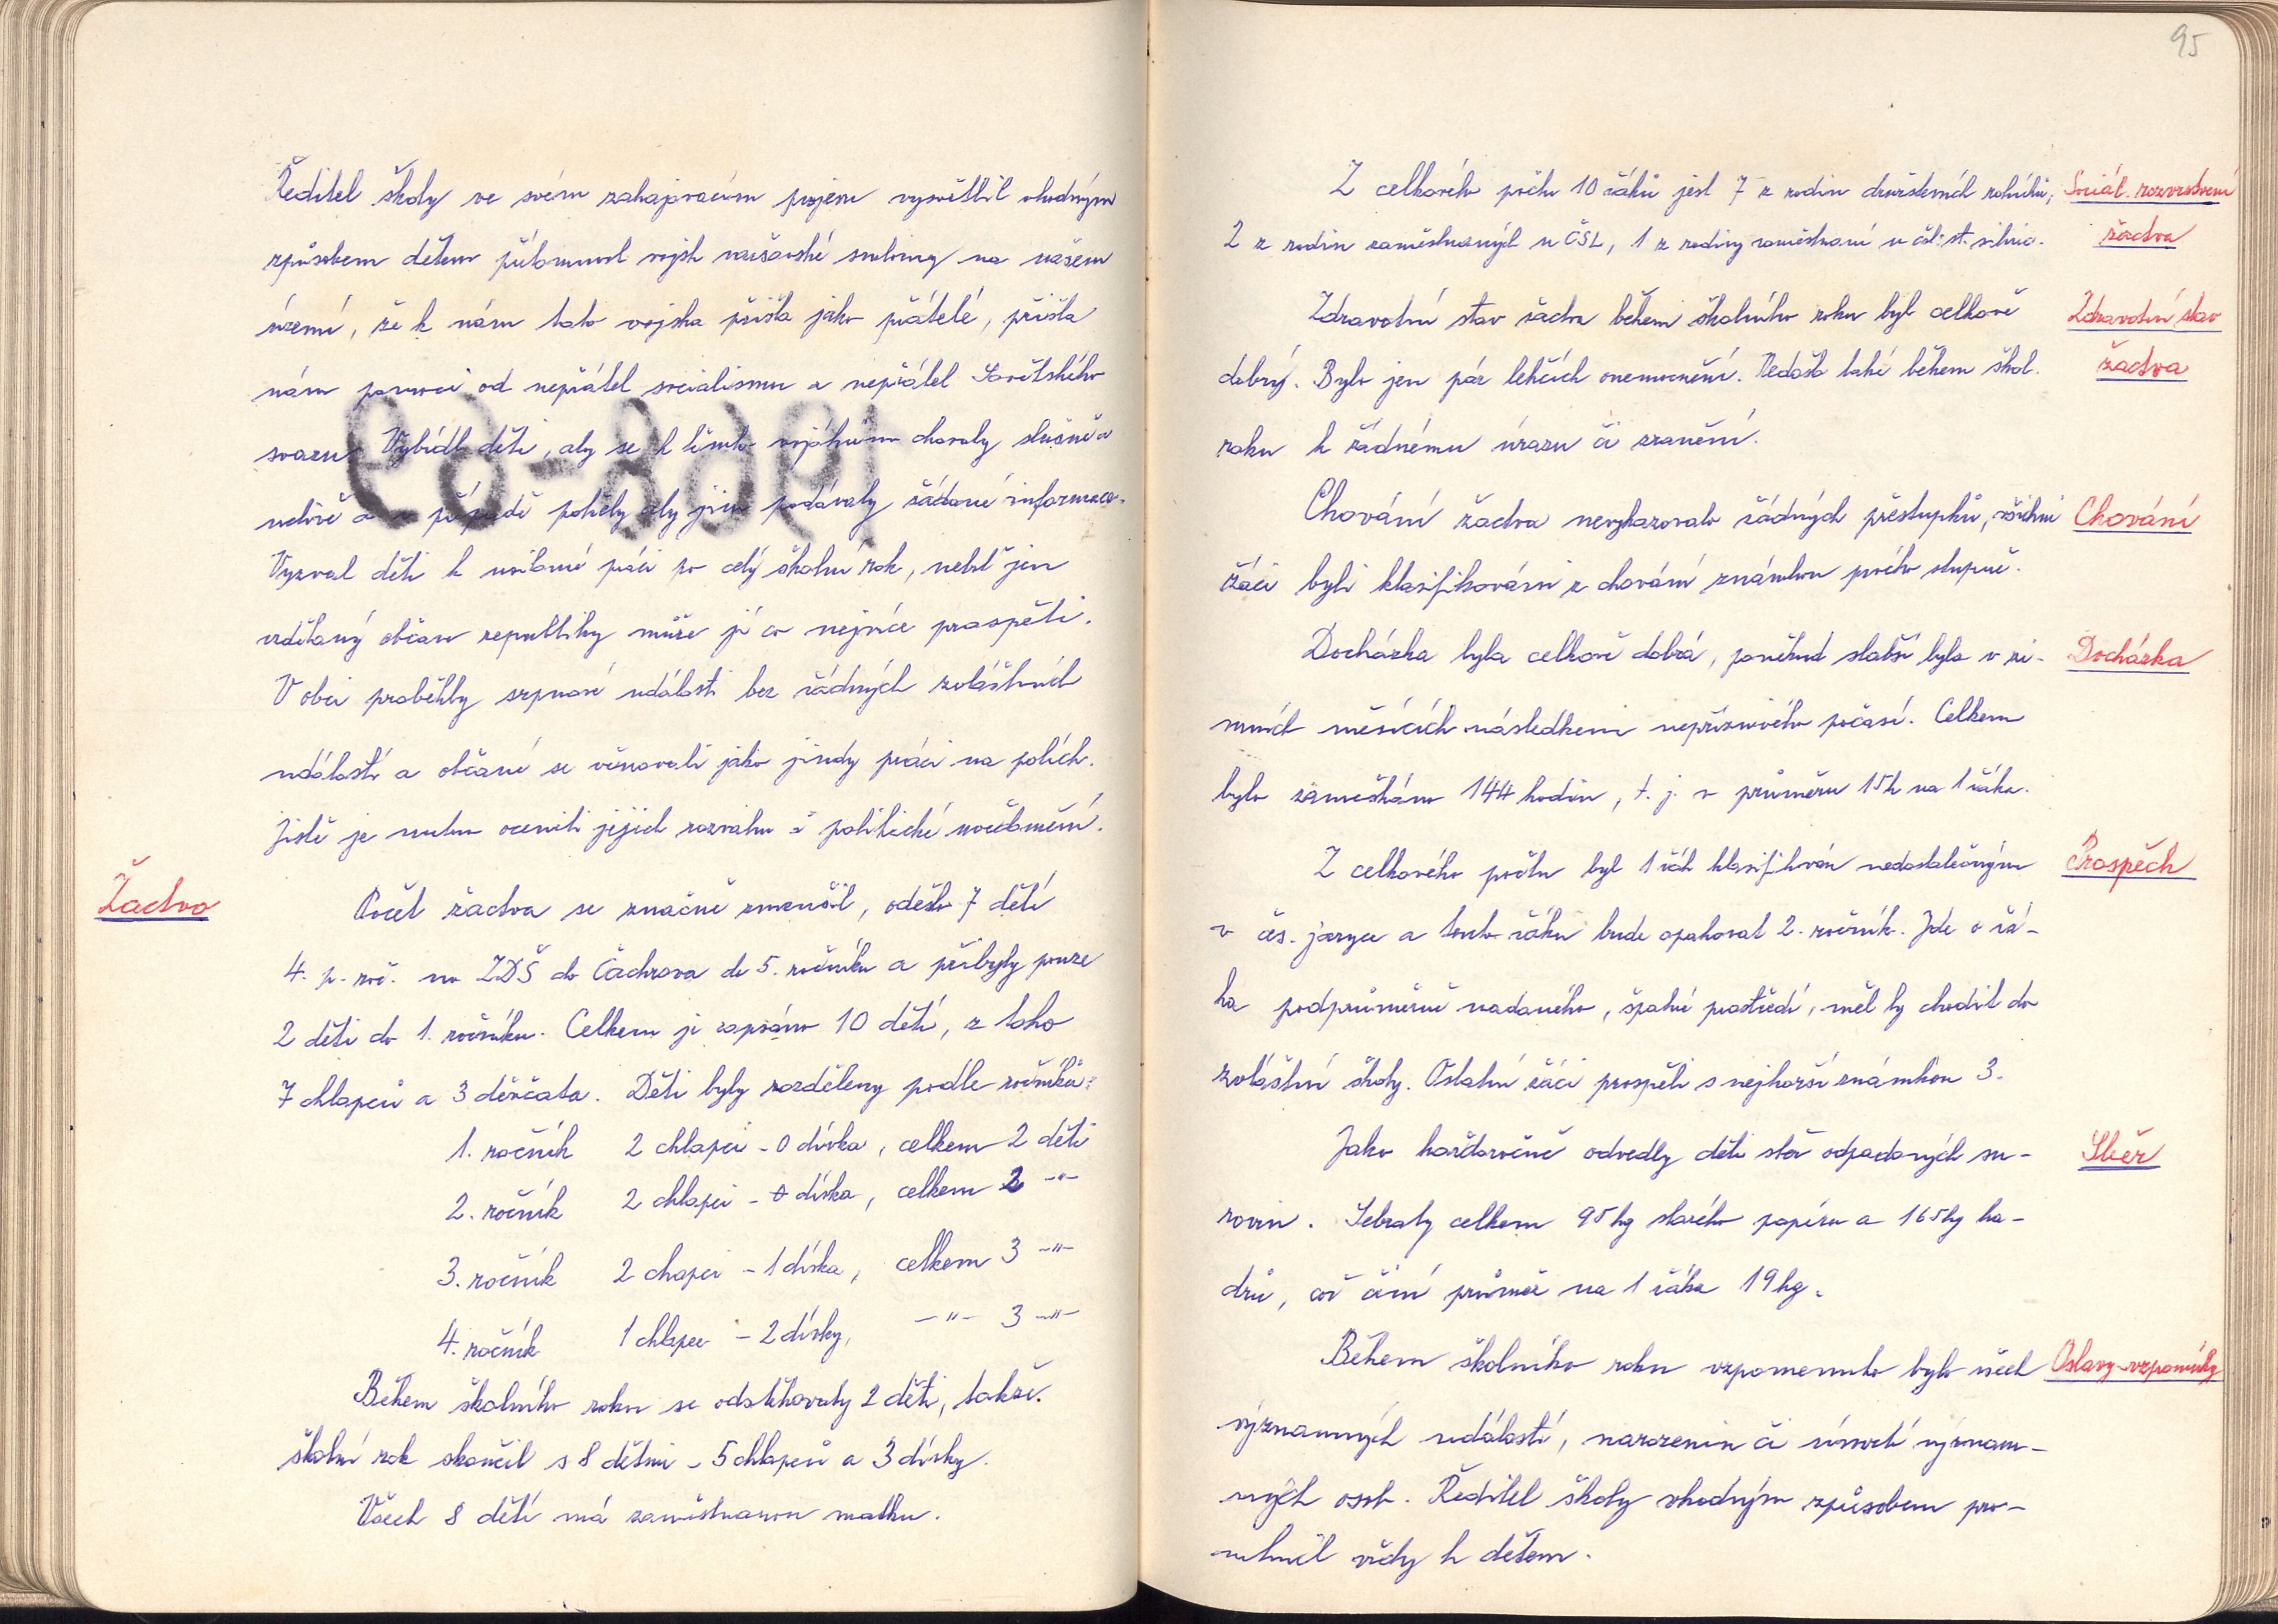 Ředitel školy ve svém zahajovacím projevu vysvětlil vhodným
způsobem dětem přítomnost vojsk varšavské smlouvy na našem
území, že k nám tato vojska přišla jako přátelé, přišla
nám pomoci od nepřátel socialismu a nepřátel Sovětského
svazu. Vybídl děti, aby se k těmto vojákům chovaly slušně a
uctivě a v případě potřeby aby jim podávaly žádané informace.
Vyzval děti k usilovné práci po celý školní rok, neboť jen
vzdělaný občan republiky může jí co nejvíce prospěti.
V obci proběhly srpnové události bez žádných zvláštních
událostí a občané se věnovali jako jindy práci na polích.
Jistě je nutno oceniti jejich rozvahu a politické uvědomění.
Žactvo
Počet žactva se značně zmenšil, odešlo 7 dětí
4. p. roč. na ZDŠ do Čachrova do 5. ročníku a přibyly pouze
2 děti do 1. ročníku. Celkem je zapsáno 10 dětí, z toho
7 chlapců a 3 děvčata. Děti byly rozděleny podle ročníků:
1. ročník 2 chlapci - 0 dívka, celkem 2 děti
2. ročník 2 chlapci - 0 dívka, celkem 2 -"-
3. ročník 2 chapci - 1 dívka, celkem 3 -"-
4. ročník 1 chlapec - 2 dívky, -"- 3 -"-
Během školního roku se odstěhovaly 2 děti, takže
školní rok skončil s 8 dětmi - 5 chlapců a 3 dívky.
Všech 8 dětí má zaměstnanou matku.
1968-69
95
Z celkového počtu 10 žáků jest 7 z rodin družstevních rolníků,
2 z rodin zaměstnaných u ČSL, 1 z rodiny zaměstnané u čsl. st. silnic.
Sociál. rozvrstvení
žactva
Zdravotní stav žactva během školního roku byl celkově
dobrý. Bylo jen pár lehčích onemocnění. Nedošlo také během škol.
roku k žádnému úrazu či zranění.
Zdravotní stav
žactva
Chování žactva nevykazovalo žádných přestupků, všichni
žáci byli klasifikováni z chování známkou prvého stupně.
Chování
Docházka byla celkově dobrá, poněkud slabší byla v zi-
mních měsících následkem nepříznivého počasí. Celkem
bylo zameškáno 144 hodin, t. j. v průměru 15h na 1 žáka.
Docházka
Z celkového počtu byl 1 žák klasifikován nedostatečným
v čes. jazyce a tento žák bude opakovat 2. ročník. Jde o žá-
ka podprůměrně nadaného, špatné prostředí, měl by chodit do
zvláštní školy. Ostatní žáci prospěli s nejhorší známkou 3.
Prospěch
Jako každoročně odvedly děti sběr odpadových su-
rovin. Sebraly celkem 95 kg starého papíru a 165kg ha-
drů, což činí průměr na 1 žáka 19 kg.
Sběr
Během školního roku vzpomenuto bylo všech
významných událostí, narozenin či úmrtí význam-
ných osob. Ředitel školy vhodným způsobem pro-
mluvil vždy k dětem.
Oslavy - vzpomínky